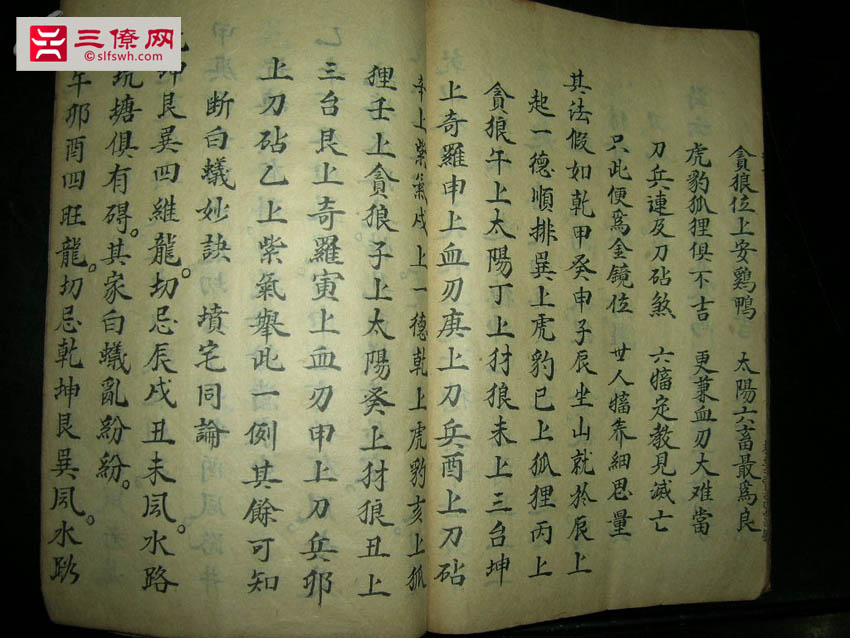 三僚网
slfswh.com
貪狼位上安鷄鴨 太陽六畜最爲良
虎豹狐狸俱不吉 更兼血刃大难當
刀兵連及刀砧煞 六畜定教見滅亡
只此便爲金鏡位 世人畜养細思量
其法假如乾甲癸申子辰坐山就於辰上
起一德順排巽上虎豹巳上狐狸丙上
貪狼午上太陽丁上犲狼未上三台坤
上奇羅申上血刃庚上刀兵酉上刀砧
辛上紫氣戌上一德乾上虎豹亥上狐
狸壬上貪狼子上太陽癸上犲狼丑上
三台艮上奇羅寅上血刃甲上刀兵卯
上刀砧乙上紫氣舉此一例其餘可知
断白蟻妙訣 墳宅同論
乾坤艮巽四維龍。切忌辰戌丑未風水路
坑塘俱有碍。其家白蟻亂紛紛。
子午卯酉四旺龍。切忌乾坤艮巽風水路